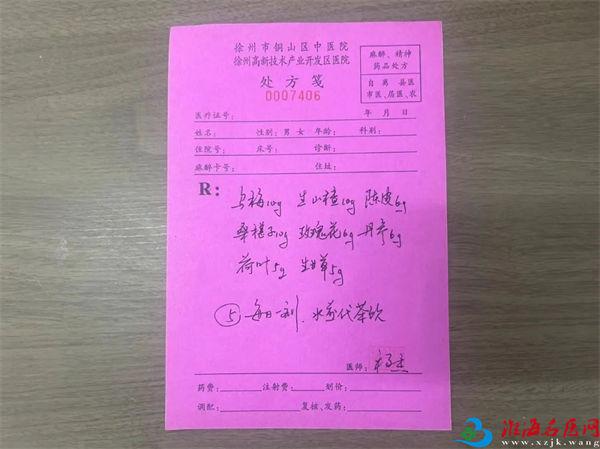 徐州市铜山区中医院
徐州高新技术产业开发区医院
处方笺
0007406
麻醉、精神
药品处方
自离县医
市医、居医、农
医疗证号:
年 月 日
姓名: 性别:男 女 年龄: 科别:
住院号: 床号: 诊断:
麻醉卡号: 住址:
R:
乌梅10g 生山楂10g 陈皮6g
桑椹子10g 玫瑰花6g 丹参6g
荷叶5g 生甘草5g
⑤ 每日一剂.水煎代茶饮
医师:
药费: 注射费: 划价:
调配: 复核、发药:
淮海名医网
www.xzjk.wang